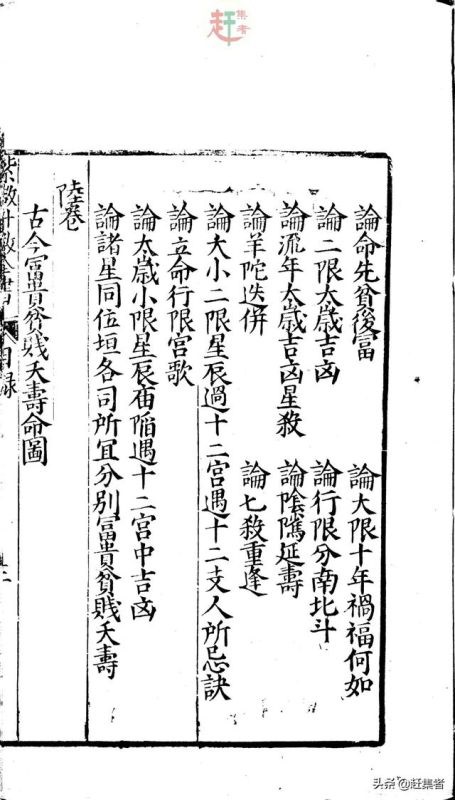 赶集者
論命先貧後富
論大限十年禍福何如
論二限太歲吉凶
論行限分南北斗
論流年太歲吉凶星殺
論陰隲延壽
論羊陀迭併
論七殺重逢
論大小二限星辰過十二宮遇十二支人所忌訣
論立命行限宮歌
論太歲小限星辰庙陷遇十二宮中吉凶
論諸星同位垣各司所宜分別富貴貧賤夭壽
陸卷
古今富貴貧賤夭壽命圖
紫微斗數全書 目錄
頭条 @赶集者